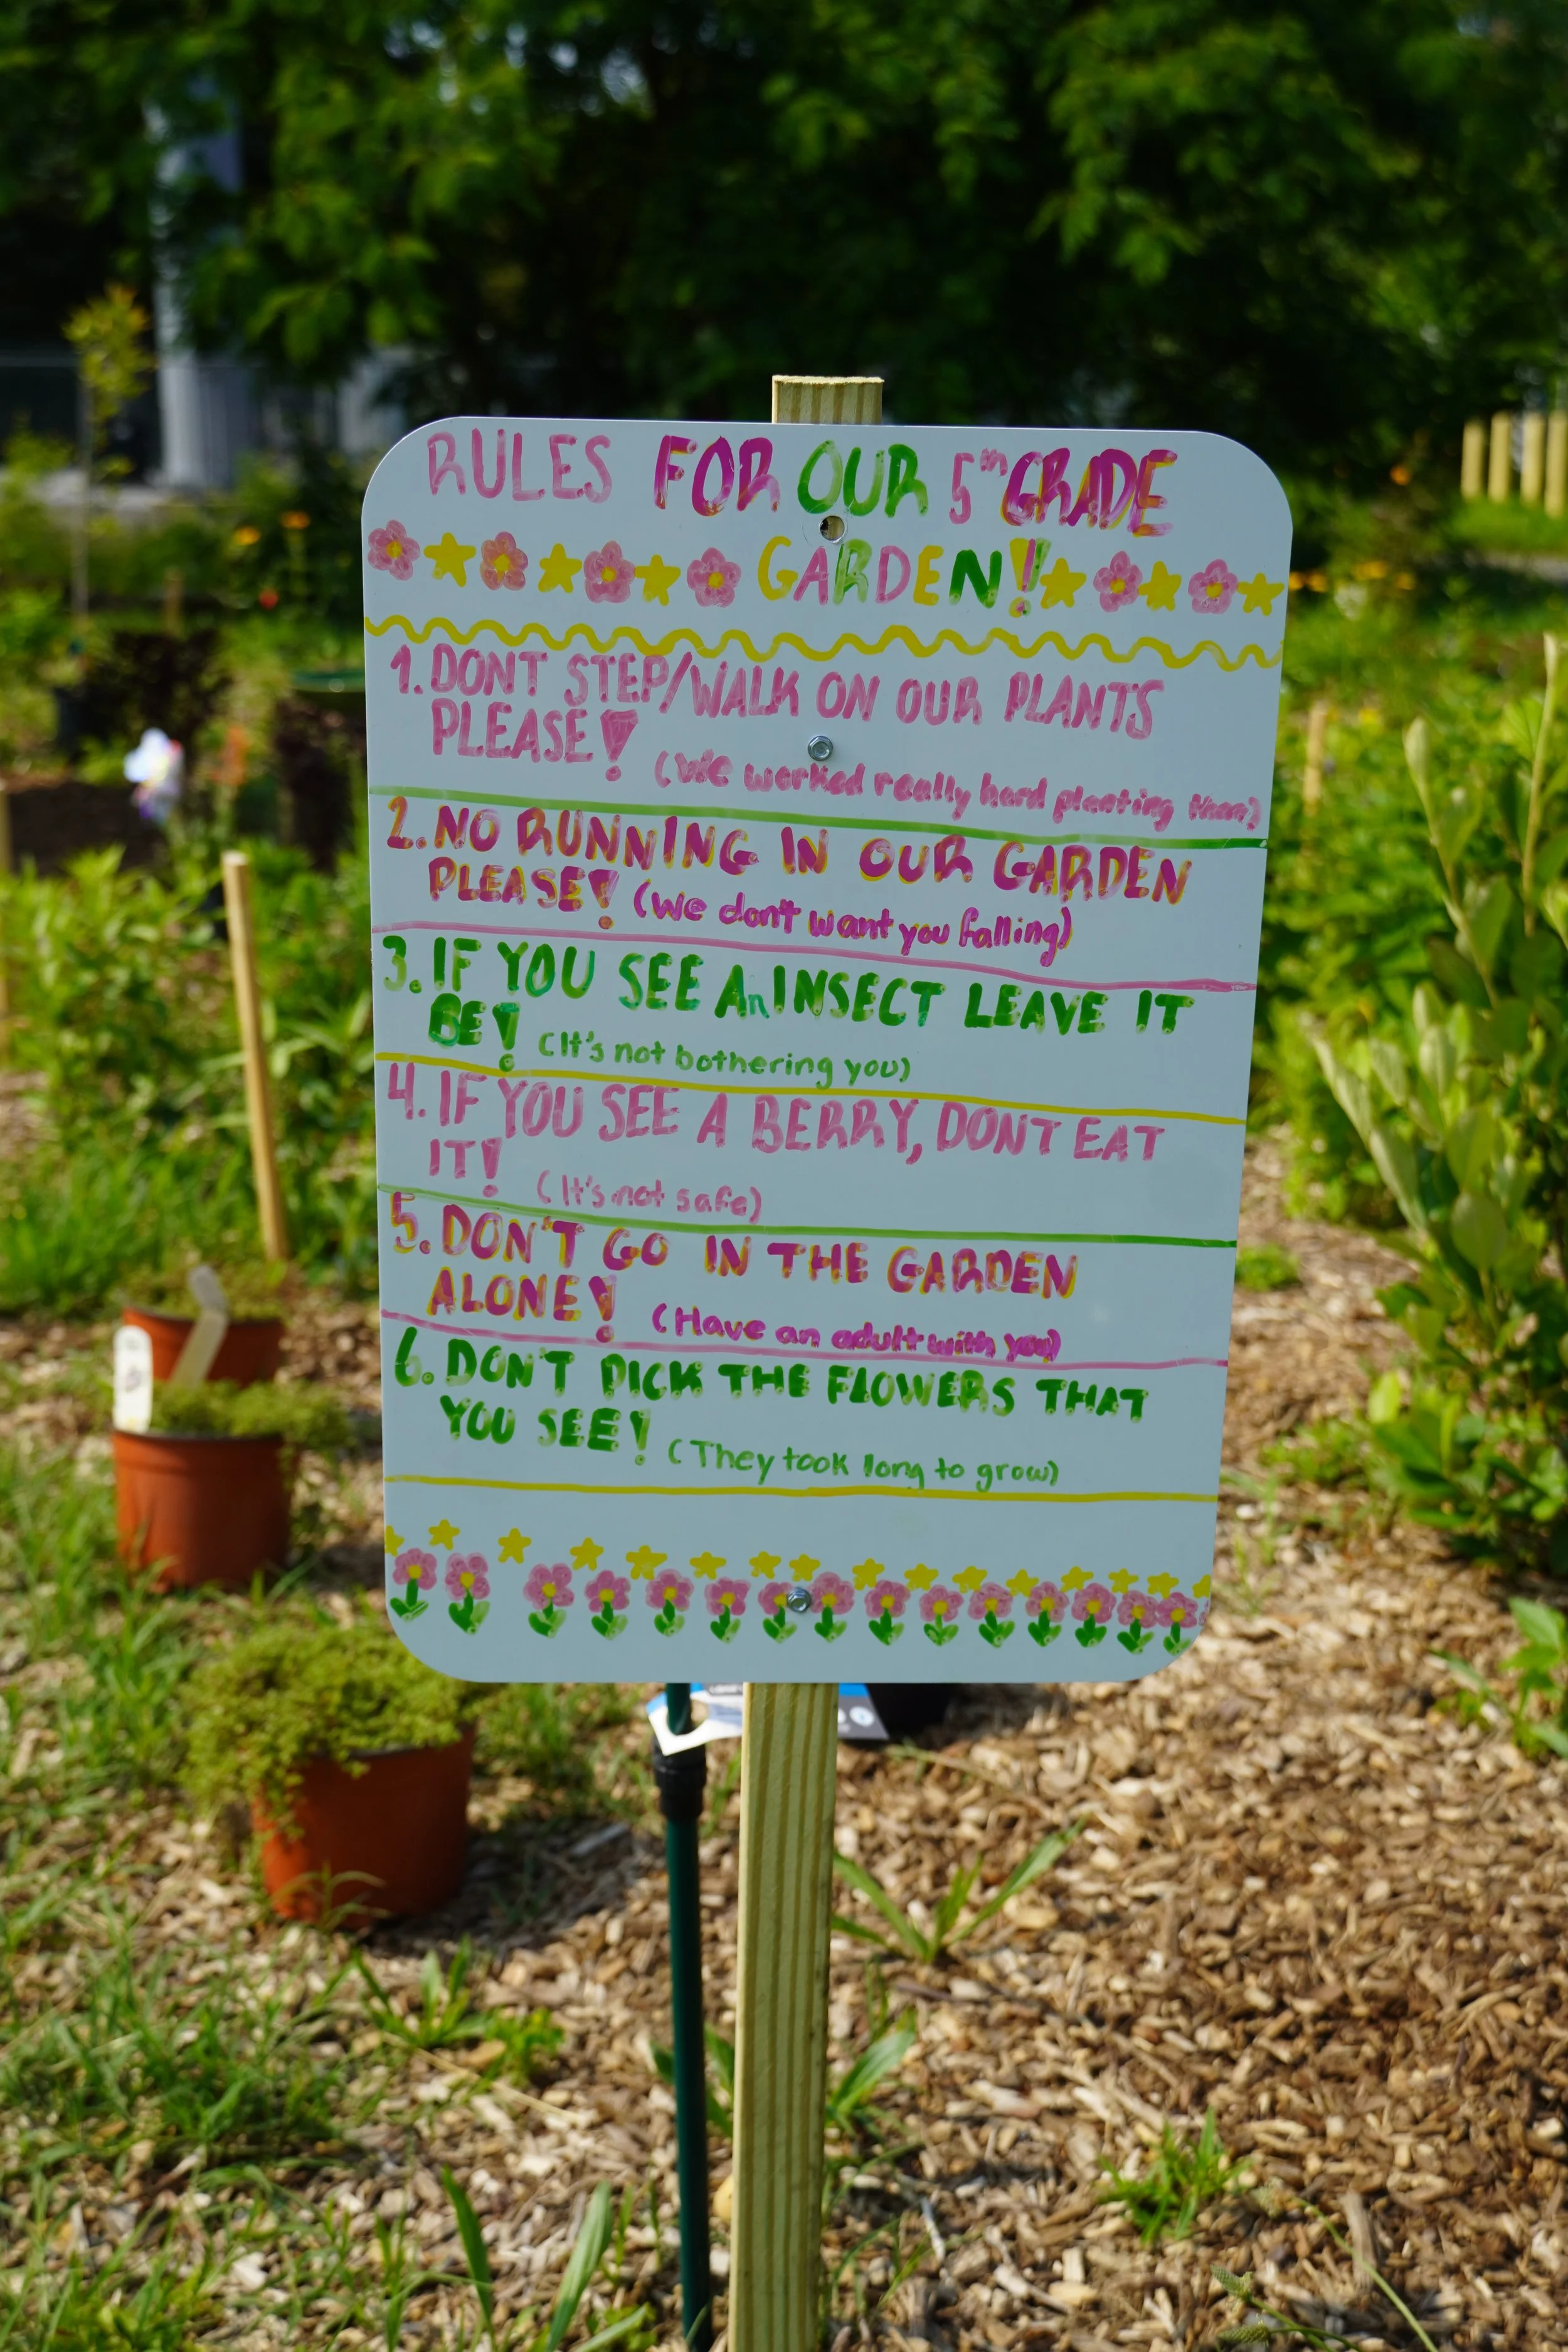 RULES FOR OUR 5th GRADE
GARDEN!
1. DONT STEP/WALK ON OUR PLANTS
PLEASE! (We worked really hard planting them)
2. NO RUNNING IN OUR GARDEN
PLEASE! (We don't want you falling)
3. IF YOU SEE An INSECT LEAVE IT
BE! (It's not bothering you)
4. IF YOU SEE A BERRY, DONT EAT
IT! (It's not safe)
5. DON'T GO IN THE GARDEN
ALONE! (Have an adult with you)
6. DON'T PICK THE FLOWERS THAT
YOU SEE! (They took long to grow)